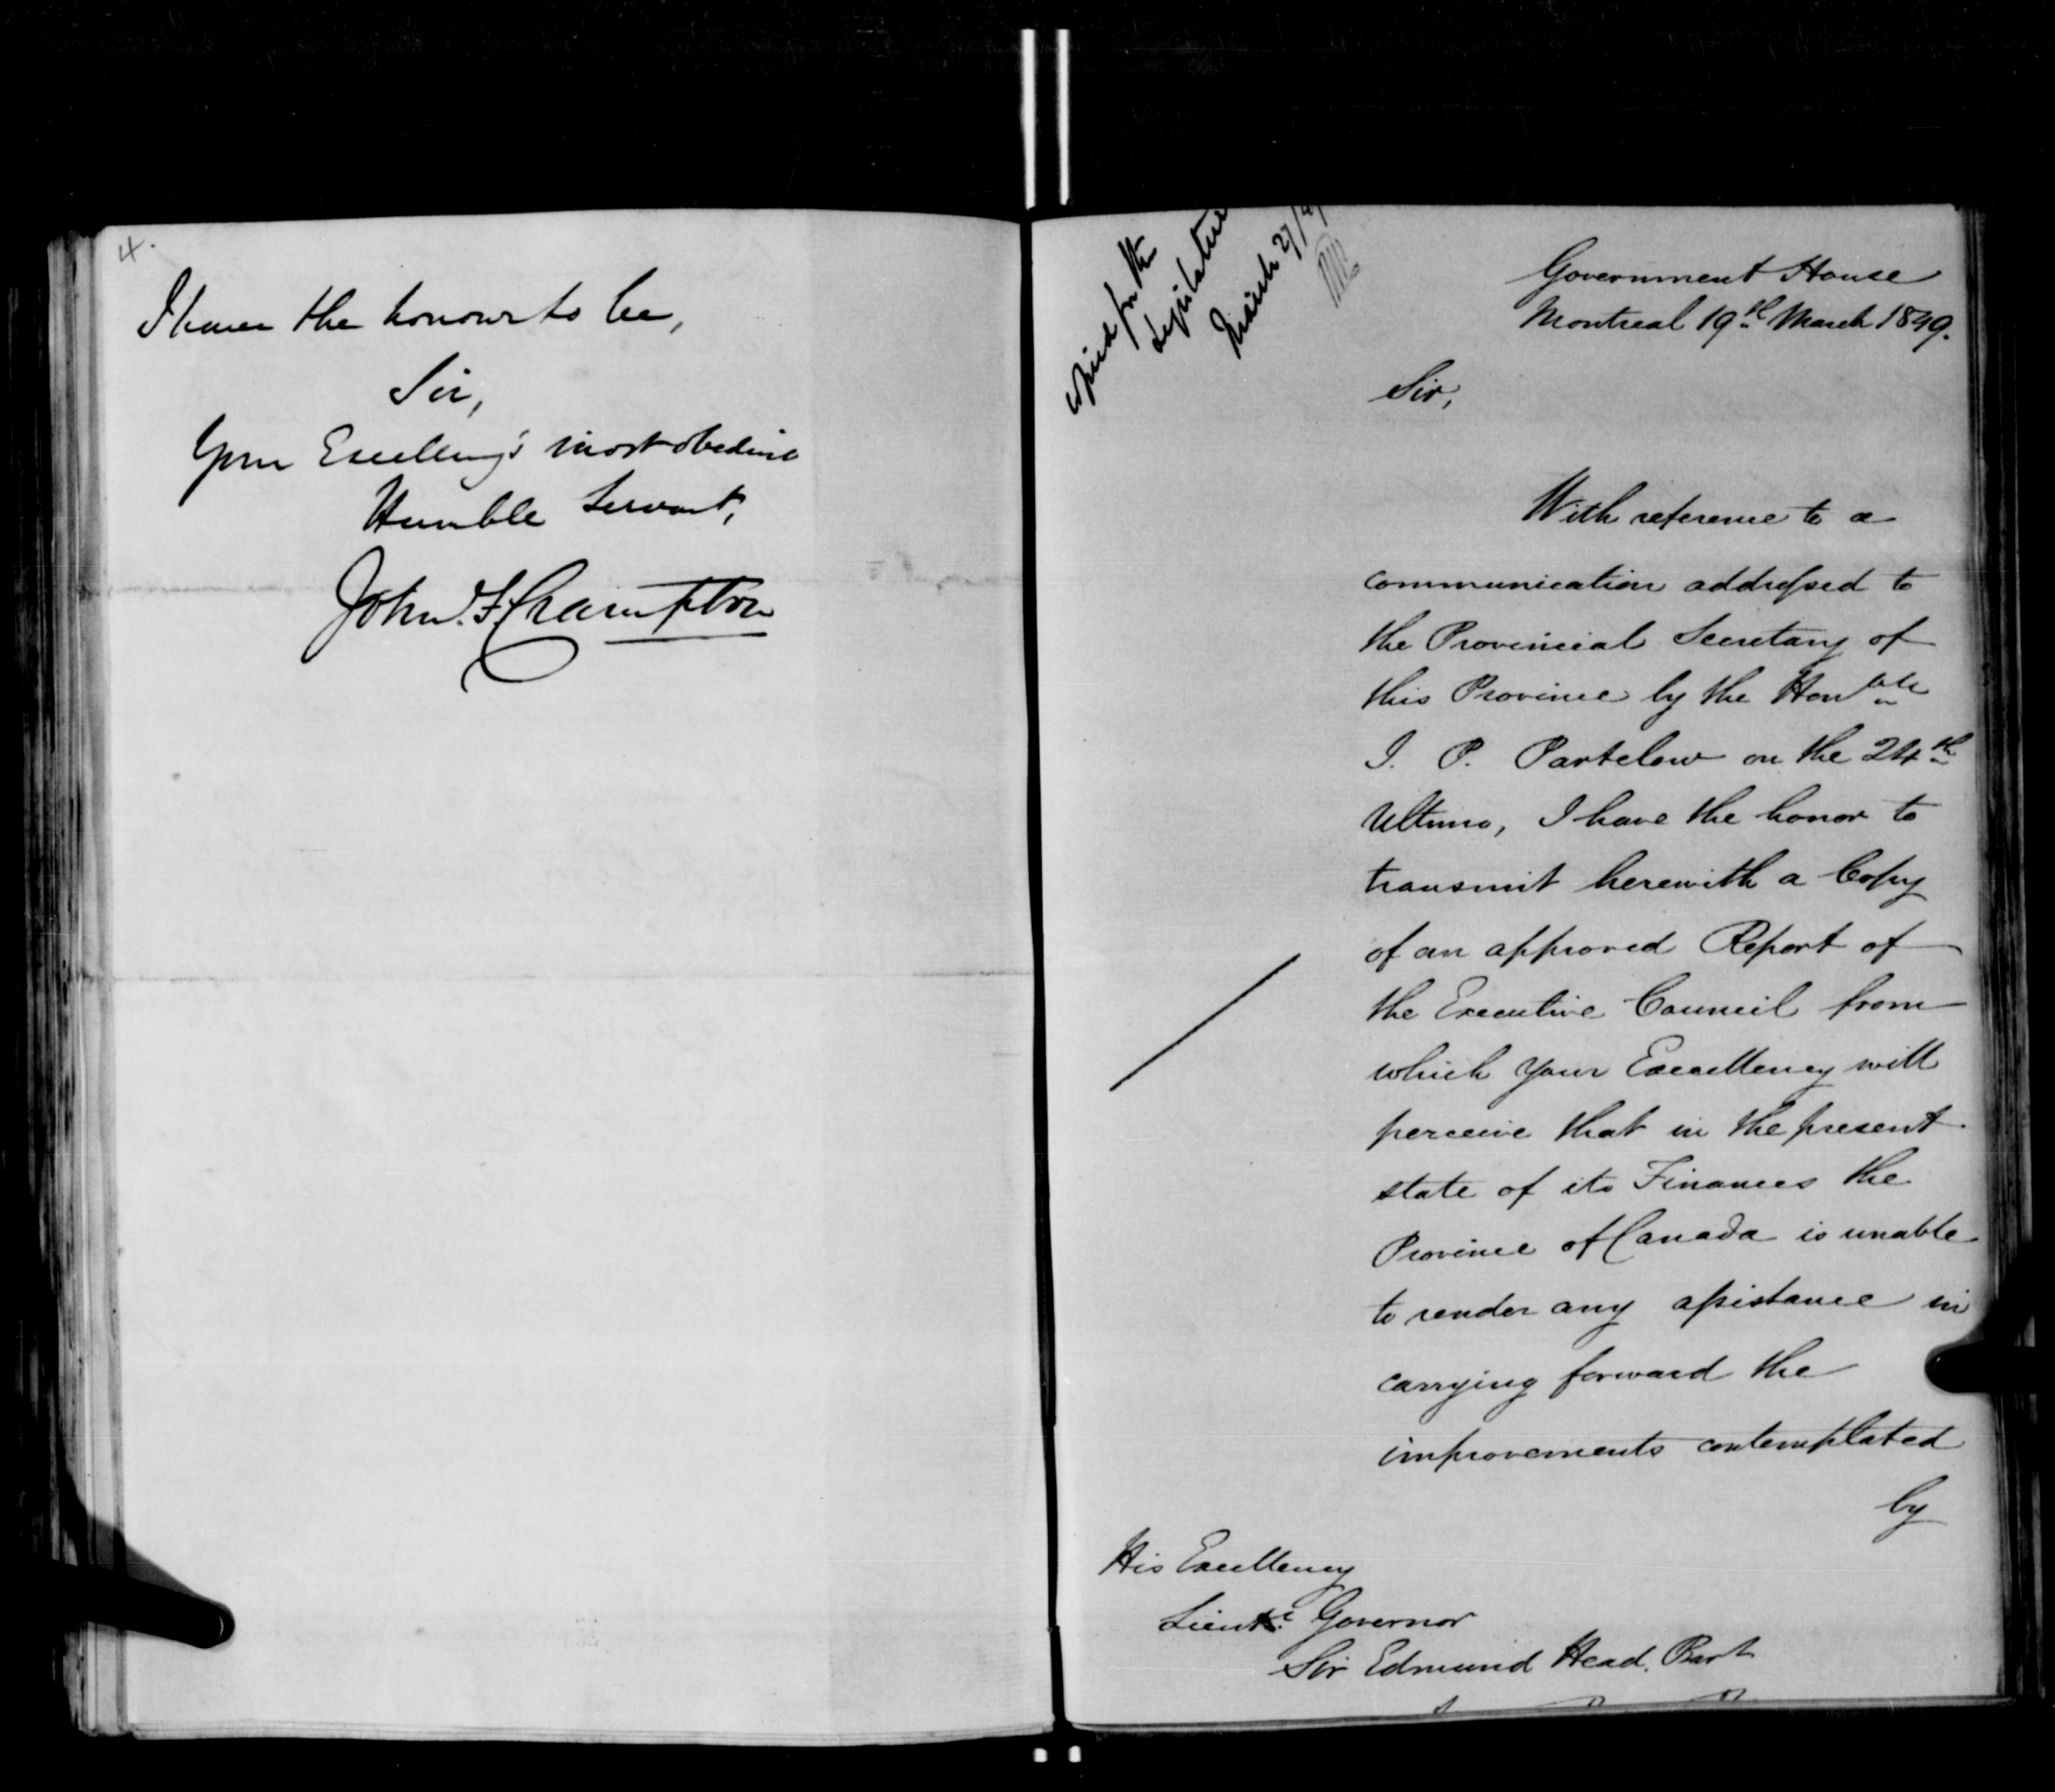 4.
I have the honour to be,
Sir,
Your Excellency's most obedient
Humble Servant,
John. F. Crampton
copied for the
Legislature
March 27/49
Government House
Montreal 19th March 1849.
Sir,
With reference to a
communication addressed to
the Provincial Secretary of
this Province by the Honble
J. P. Partelow on the 24th
Ultimo, I have the honor to
transmit herewith a Copy
of an approved Report of
the Executive Council from
which Your Excellency will
perceive that in the present
state of its Finances the
Province of Canada is unable
to render any assistance in
carrying forward the
improvements contemplated
by
His Excellency
Lieutt Governor
Sir Edmund Head. Bart